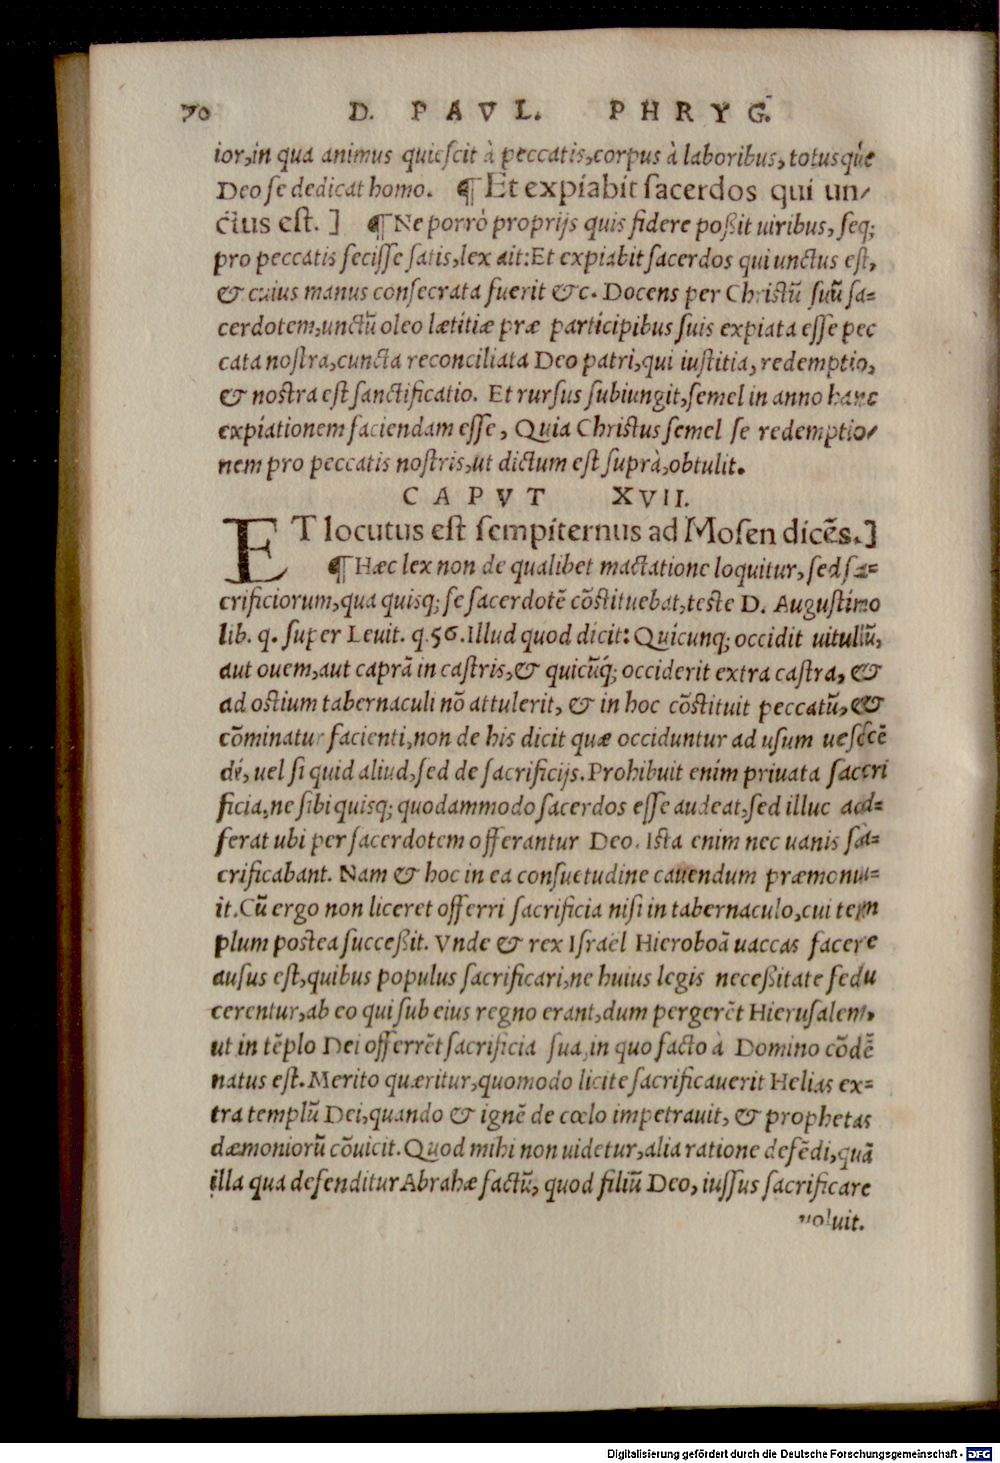 70 D. PAVL. PHRYG.
ior, in qua animus quiescit à peccatis, corpus à laboribus, totus que
Deo se dedicat homo. ¶ Et expiabit sacerdos qui un/
ctus est.] ¶ Ne porrò proprijs quis fidere poßit uiribus, seq;
pro peccatis fecisse satis, lex ait: Et expiabit sacerdos qui unctus est,
& cuius manus consecrata fuerit &c. Docens per Christū suū sa=
cerdotem, unctū oleo lætitiæ præ participibus suis expiata esse pec
cata nostra, cuncta reconciliata Deo patri, qui iustitia, redemptio,
& nostra est sanctificatio. Et rursus subiungit, semel in anno hanc
expiationem faciendam esse, Quia Christus semel se redemptio/
nem pro peccatis nostris, ut dictum est suprà, obtulit.
CAPVT XVII.
ET locutus est sempiternus ad Mosen dicēs.]
¶ Hæc lex non de qualibet mactatione loquitur, sed sa=
crificiorum, qua quisq; se sacerdotē cōstituebat, teste D. Augustino
lib. q. super Leuit. q. 56. Illud quod dicit: Quicunq; occidit uitulū,
aut ouem, aut caprā in castris, & quicūq; occiderit extra castra, &
ad ostium tabernaculi nō attulerit, & in hoc cōstituit peccatū, &
cōminatur facienti, non de his dicit quæ occiduntur ad usum uescē
di, uel si quid aliud, sed de sacrificijs. Prohibuit enim priuata sacri
ficia, ne sibi quisq; quodammodo sacerdos esse audeat, sed illuc ad=
ferat ubi per sacerdotem offerantur Deo. Ista enim nec uanis sa=
crificabant. Nam & hoc in ea consuetudine cauendum præmonu=
it. Cū ergo non liceret offerri sacrificia nisi in tabernaculo, cui tem
plum postea succeßit. Vnde & rex Israel Hieroboā uaccas facere
ausus est, quibus populus sacrificari, ne huius legis neceßitate sedu
cerentur, ab eo qui sub eius regno erant, dum pergerēt Hierusalem,
ut in tēplo Dei offerrēt sacrificia sua, in quo facto à Domino cōdē
natus est. Merito quæritur, quomodo licite sacrificauerit Helias ex=
tra templū Dei, quando & ignē de cœlo impetrauit, & prophetas
dæmoniorū cōuicit. Quod mihi non uidetur, alia ratione defēdi, quā
illa qua defenditur Abrahæ factū, quod filiū Deo, iussus sacrificare
uoluit.
Digitalisierung gefördert durch die Deutsche Forschungsgemeinschaft - DFG